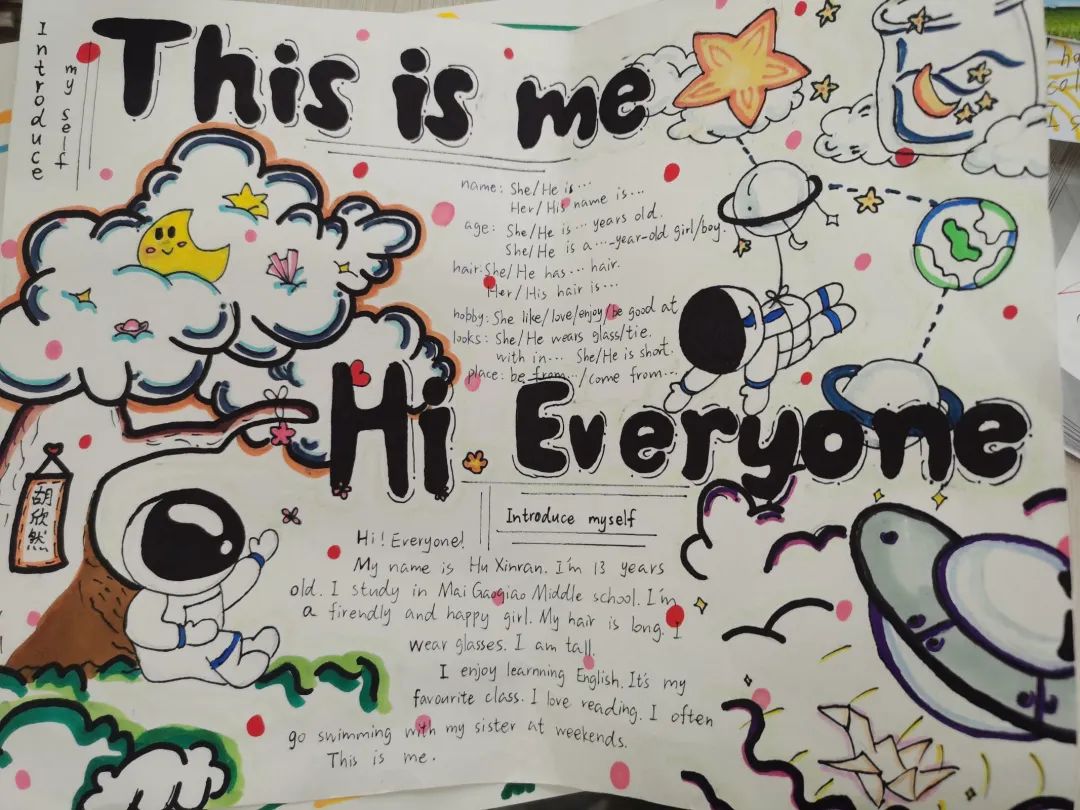 Introduce
my self
This is me
name: She/He is...
Her/His name is...
age: She/He is... years old.
She/He is a ...-year-old girl/boy.
hair: She/He has... hair.
Her/His hair is...
hobby: She like/love/enjoy/be good at
looks: She/He wears glass/tie.
with in... She/He is short.
place: be from.../come from...
Hi Everyone
胡欣然
Introduce myself
Hi! Everyone!
My name is Hu Xinran. I'm 13 years
old. I study in Mai Gaoqiao Middle school. I'm
a firendly and happy girl. My hair is long. I
wear glasses. I am tall.
I enjoy learnning English. It's my
favourite class. I love reading. I often
go swimming with my sister at weekends.
This is me.